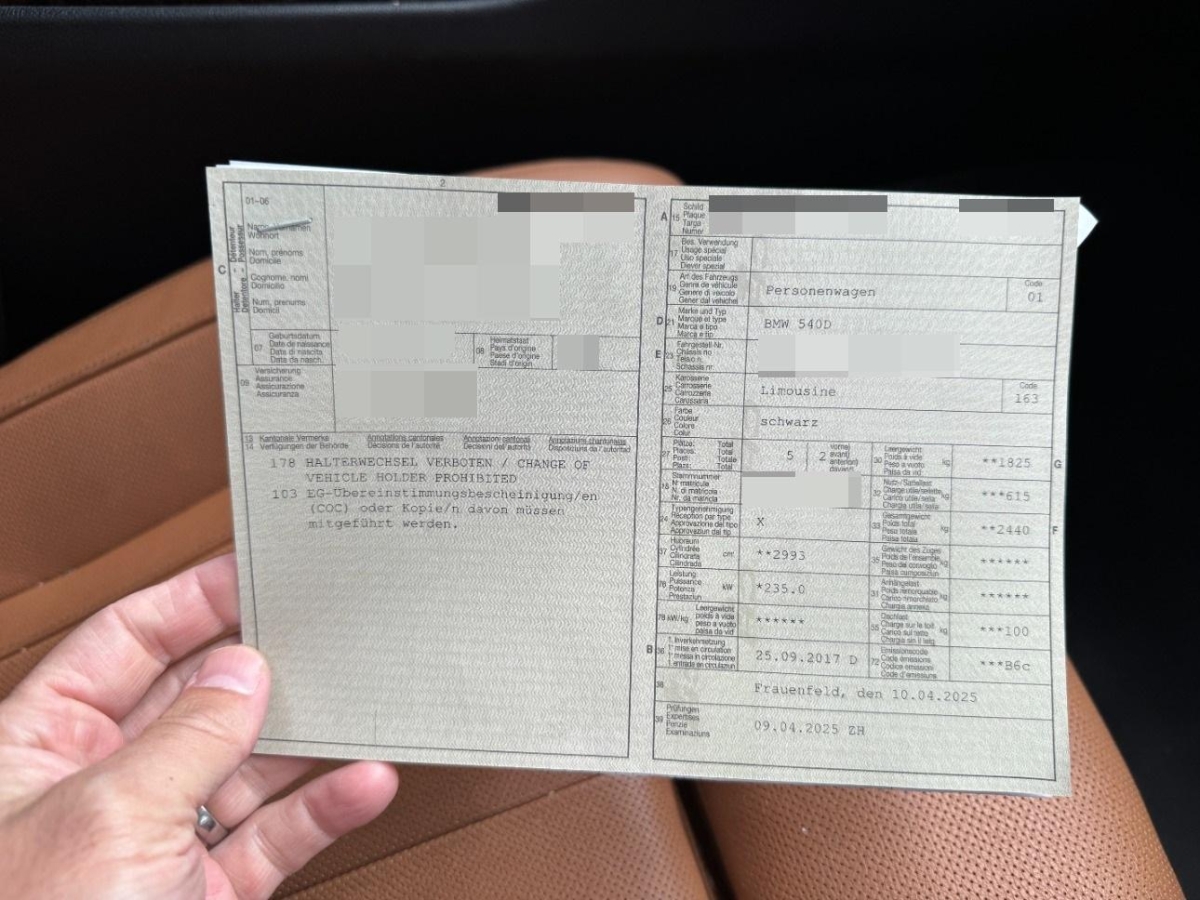 2
01-06
C
Wohnort
Nom, prénoms
Domicile
Cognome, nomi
Domicilio
Num, prenums
Domicil
07
Geburtsdatum
Date de naissance
Data di nascita
Data da nasch.
08
Heimatstaat
Pays d'origine
Paese d'origine
Stadi d'origin
09
Versicherung
Assurance
Assicurazione
Assicuranza
13
14
Kantonale Vermerke
Verfügungen der Behörde
Annotations cantonales
Décisions de l'autorité
Annotazioni cantonali
Decisioni dell'autorità
Annotaziuns chantunalas
Disposiziuns da l'autoritad
178 HALTERWECHSEL VERBOTEN / CHANGE OF
VEHICLE HOLDER PROHIBITED
103 EG-Übereinstimmungsbescheinigung/en
(COC) oder Kopie/n davon müssen
mitgeführt werden.
A
15
Schild
Plaque
Targa
Numer
17
Bes. Verwendung
Usage spécial
Uso speciale
Diever spezial
19
Art des Fahrzeugs
Genre de véhicule
Genere di veicolo
Gener dal vehichel
Personenwagen
Code
01
D
21
Marke und Typ
Marque et type
Marca e tipo
Marca e tip
BMW 540D
E
23
Fahrgestell-Nr.
Châssis no
Telaio n.
Schassis nr.
25
Karosserie
Carrosserie
Carrozzeria
Carossaria
Limousine
Code
163
26
Farbe
Couleur
Colore
Colur
schwarz
27
Plätze: Total
Places: Total
Posti: Totale
Plazs: Total
5
2
vorne/
avant/
anteriori/
davant
30
Leergewicht
Poids à vide
Peso a vuoto
Paisa da vid
kg
**1825
G
18
Stammnummer
N° matricule
N. di matricola
Nr. da matricla
32
Nutz-/Sattellast
Charge utile/sellette
Carico utile/sella
Chargia utila/sella
kg
***615
24
Typengenehmigung
Réception par type
Approvazione del tipo
Approvaziun dal tip
X
33
Gesamtgewicht
Poids total
Peso totale
Paisa totala
kg
**2440
F
37
Hubraum
Cylindrée
Cilindrata
Cilindrada
cm³
**2993
35
Gewicht des Zuges
Poids de l'ensemble
Peso del convoglio
Paisa cumposiziun
kg
******
76
Leistung
Puissance
Potenza
Prestaziun
kW
*235.0
31
Anhängelast
Poids remorquable
Carico rimorchiato
Chargia annexa
kg
******
78 kW/kg
Leergewicht
poids à vide
peso a vuoto
paisa da vid
******
55
Dachlast
Charge sur le toit
Carico sul tetto
Chargia sin il tetg
kg
***100
B
36
1. Inverkehrsetzung
1re mise en circulation
1a messa in circolazione
1. entrada en circulaziun
25.09.2017 D
72
Emissionscode
Code émissions
Codice emissioni
Code d'emissiuns
***B6c
38
Frauenfeld, den 10.04.2025
39
Prüfungen
Expertises
Perizie
Examinaziuns
09.04.2025 ZH